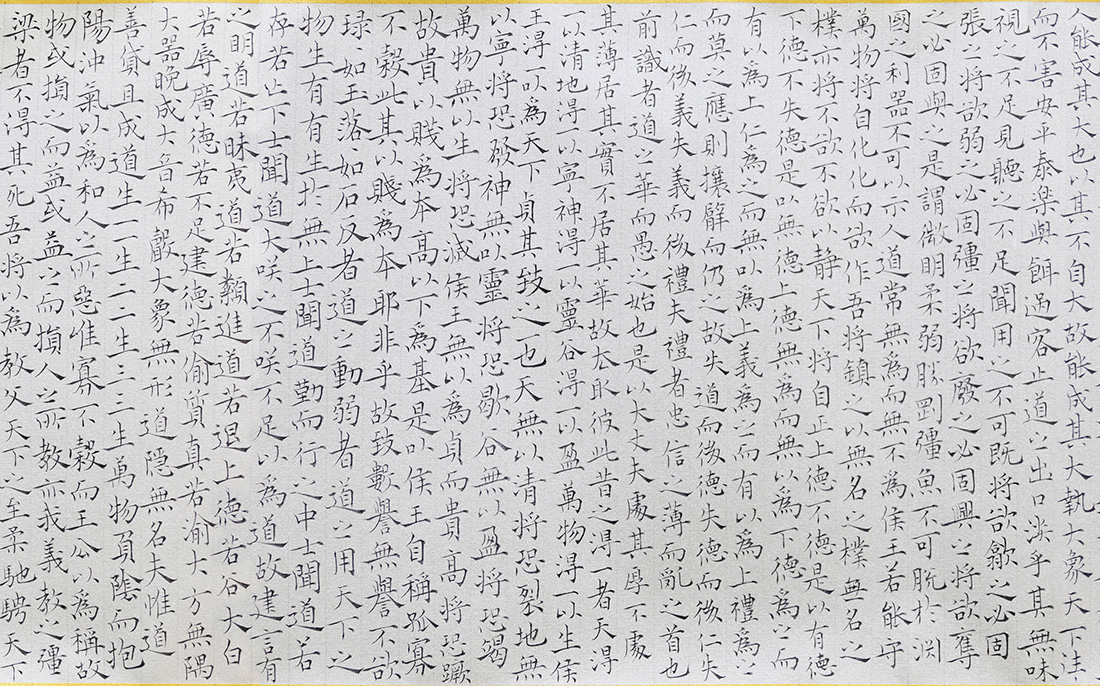 人能成其大也以其不自大故能成其大執大象天下往
而不害安平泰樂與餌過客止道之出口淡乎其無味
視之不足見聽之不足聞用之不可既將欲歙之必固
張之將欲弱之必固彊之將欲廢之必固興之將欲奪
之必固與之是謂微明柔弱勝剛彊魚不可脫於淵
國之利器不可以示人道常無為而無不為侯王若能守
萬物將自化化而欲作吾將鎮之以無名之樸無名之
樸亦將不欲不欲以靜天下將自正上德不德是以有德
下德不失德是以無德上德無為而無以為下德為之而
有以為上仁為之而無以為上義為之而有以為上禮為之
而莫之應則攘臂而仍之故失道而後德失德而後仁失
仁而後義失義而後禮夫禮者忠信之薄而亂之首也
前識者道之華而愚之始也是以大丈夫處其厚不處
其薄居其實不居其華故去取彼此昔之得一者天得
一以清地得一以寧神得一以靈谷得一以盈萬物得一以生侯
王得一以為天下貞其致之一也天無以清將恐裂地無
以寧將恐發神無以靈將恐歇谷無以盈將恐竭
萬物無以生將恐滅侯王無以為貞而貴高將恐蹶
故貴以賤為本高以下為基是以侯王自稱孤寡
不穀此其以賤為本耶非乎故致數譽無譽不欲
琭〻如玉落〻如石反者道之動弱者道之用天下之
物生有有生於無上士聞道勤而行之中士聞道若
存若亡下士聞道大咲之不咲不足以為道故建言有
之明道若昧夷道若纇進道若退上德若谷大白
若辱廣德若不足建德若偷質真若渝大方無隅
大器晚成大音希聲大象無形道隱無名夫惟道
善貸且成道生一一生二二生三三生萬物負陰而抱
陽沖氣以為和人之所惡惟寡不穀而王公以為稱故
物或損之而益或益之而損人之所教亦我義教之彊
梁者不得其死吾將以為教父天下之至柔馳騁天下